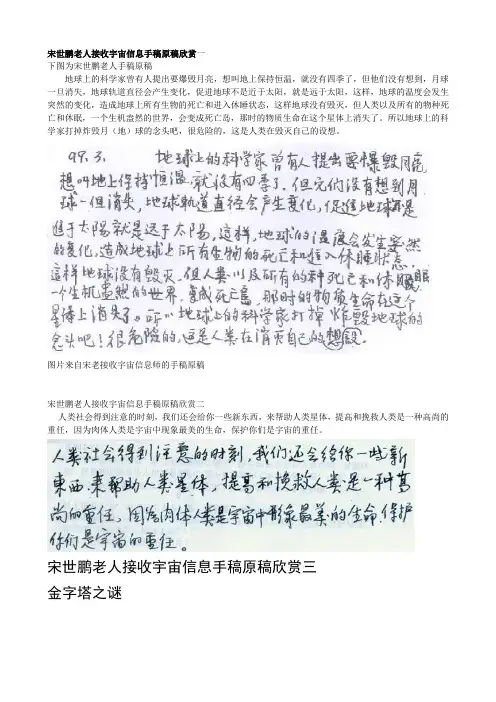 宋世鹏老人接收宇宙信息手稿原稿欣赏一
下图为宋世鹏老人手稿原稿
地球上的科学家曾有人提出要爆毁月亮，想叫地上保持恒温，就没有四季了，但他们没有想到，月球
一旦消失，地球轨道直径会产生变化，促进地球不是近于太阳，就是远于太阳，这样，地球的温度会发生
突然的变化，造成地球上所有生物的死亡和进入休睡状态，这样地球没有毁灭，但人类以及所有的物种死
亡和休眠，一个生机盎然的世界，会变成死亡岛，那时的物质生命在这个星体上消失了。所以地球上的科
学家打掉炸毁月（地）球的念头吧，很危险的，这是人类在毁灭自己的设想。
99.3. 地球上的科学家曾有人提出要爆毁月亮
想叫地上保持恒温，就没有四季了，但他们没有想到月
球一但消失，地球轨道直径会产生变化，促进地球不是
近于太阳就是远于太阳，这样，地球的温度会发生突然
的变化，造成地球上所有生物的死亡和进入休睡状态，
这样地球没有毁灭，但人类以及所有的种死亡和休眠
一个生机盎然的世界，变成死亡岛，那时的物质生命在这个
星体上消失了。所以地球上的科学家打掉炸毁地球的
念头吧！很危险的，这是人类在消灭自己的想设。
图片来自宋老接收宇宙信息师的手稿原稿
宋世鹏老人接收宇宙信息手稿原稿欣赏二
人类社会得到注意的时刻，我们还会给你一些新东西，来帮助人类星体，提高和挽救人类是一种高尚的
重任，因为肉体人类是宇宙中现象最美的生命，保护你们是宇宙的重任。
人类社会得到注意的时刻，我们还会给你一些新
東西，来帮助人类星体，提高和挽救人类是一种高
尚的重任，因为肉体人类是宇宙中形象最美的生命，保护
你们是宇宙的重任。
宋世鹏老人接收宇宙信息手稿原稿欣赏三
金字塔之谜